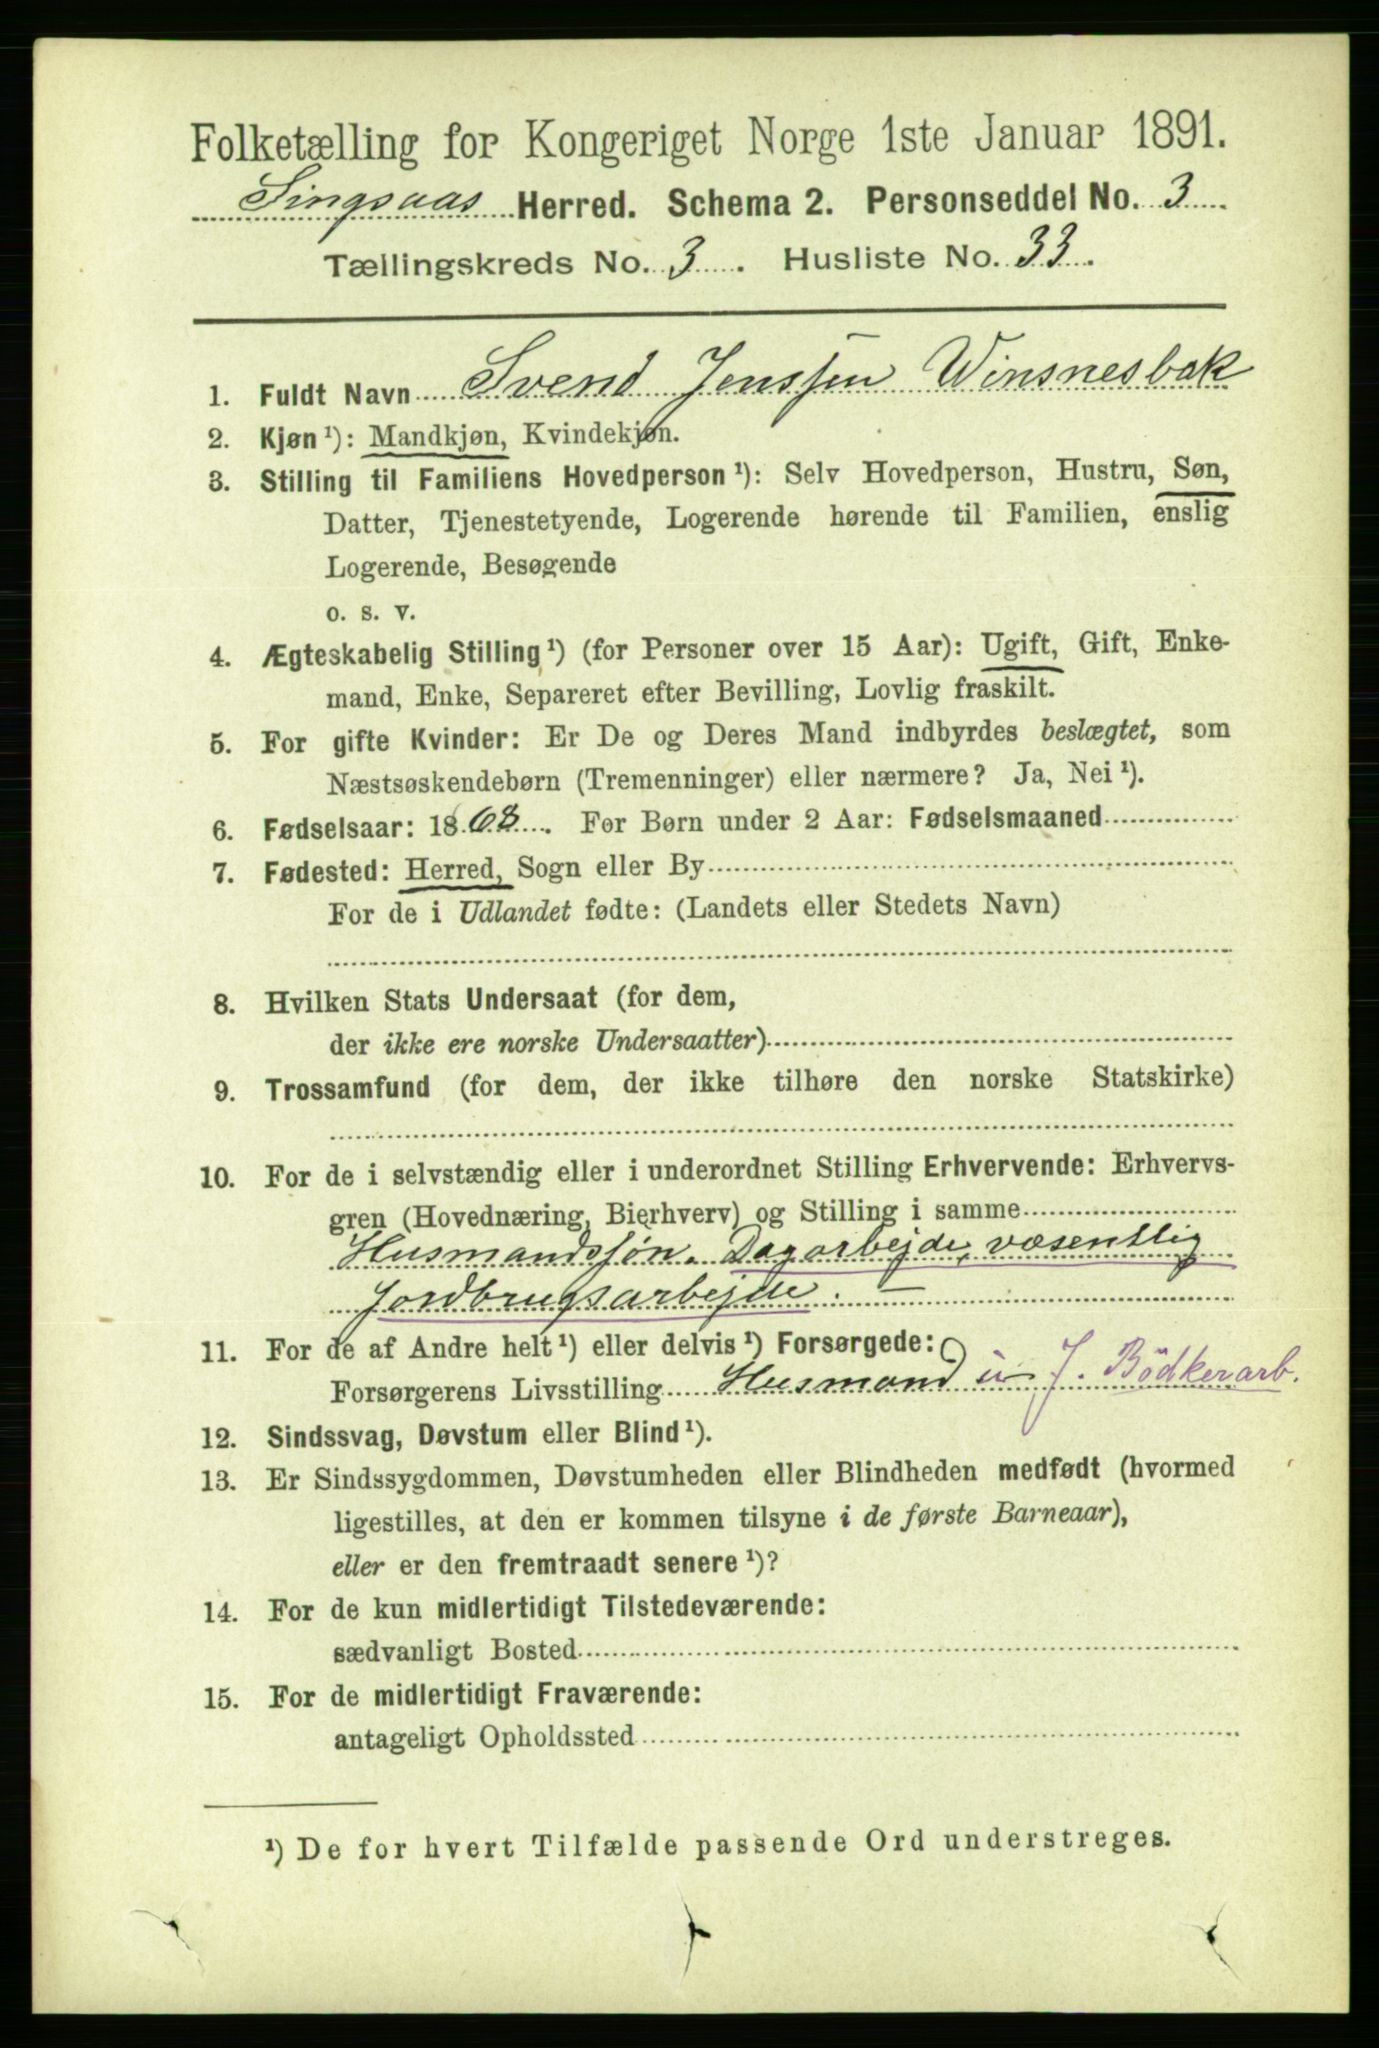 Folketælling for Kongeriget Norge 1ste Januar 1891.
Singsaas Herred. Schema 2. Personseddel No. 3
Tællingskreds No. 3. Husliste No. 33.
1. Fuldt Navn Svend Jenssen Winsnesbak
2. Kjøn ¹): Mandkjøn, Kvindekjøn.
3. Stilling til Familiens Hovedperson ¹): Selv Hovedperson, Hustru, Søn,
Datter, Tjenestetyende, Logerende hørende til Familien, enslig
Logerende, Besøgende
o. s. v.
4. Ægteskabelig Stilling ¹) (for Personer over 15 Aar): Ugift, Gift, Enke-
mand, Enke, Separeret efter Bevilling, Lovlig fraskilt.
5. For gifte Kvinder: Er De og Deres Mand indbyrdes beslægtet, som
Næstsøskendebørn (Tremenninger) eller nærmere? Ja, Nei ¹).
6. Fødselsaar: 1868. For Børn under 2 Aar: Fødselsmaaned
7. Fødested: Herred, Sogn eller By
For de i Udlandet fødte: (Landets eller Stedets Navn)
8. Hvilken Stats Undersaat (for dem,
der ikke ere norske Undersaatter)
9. Trossamfund (for dem, der ikke tilhøre den norske Statskirke)
10. For de i selvstændig eller i underordnet Stilling Erhvervende: Erhvervs-
gren (Hovednæring, Bierhverv) og Stilling i samme
Husmandssøn. Dagarbejde, væsentlig
Jordbrugsarbejde. —
11. For de af Andre helt ¹) eller delvis ¹) Forsørgede:
Forsørgerens Livsstilling Husmand u. J. Bödkerarb.
12. Sindssvag, Døvstum eller Blind ¹).
13. Er Sindssygdommen, Døvstumheden eller Blindheden medfødt (hvormed
ligestilles, at den er kommen tilsyne i de første Barneaar),
eller er den fremtraadt senere ¹)?
14. For de kun midlertidigt Tilstedeværende:
sædvanligt Bosted
15. For de midlertidigt Fraværende:
antageligt Opholdssted
¹) De for hvert Tilfælde passende Ord understreges.